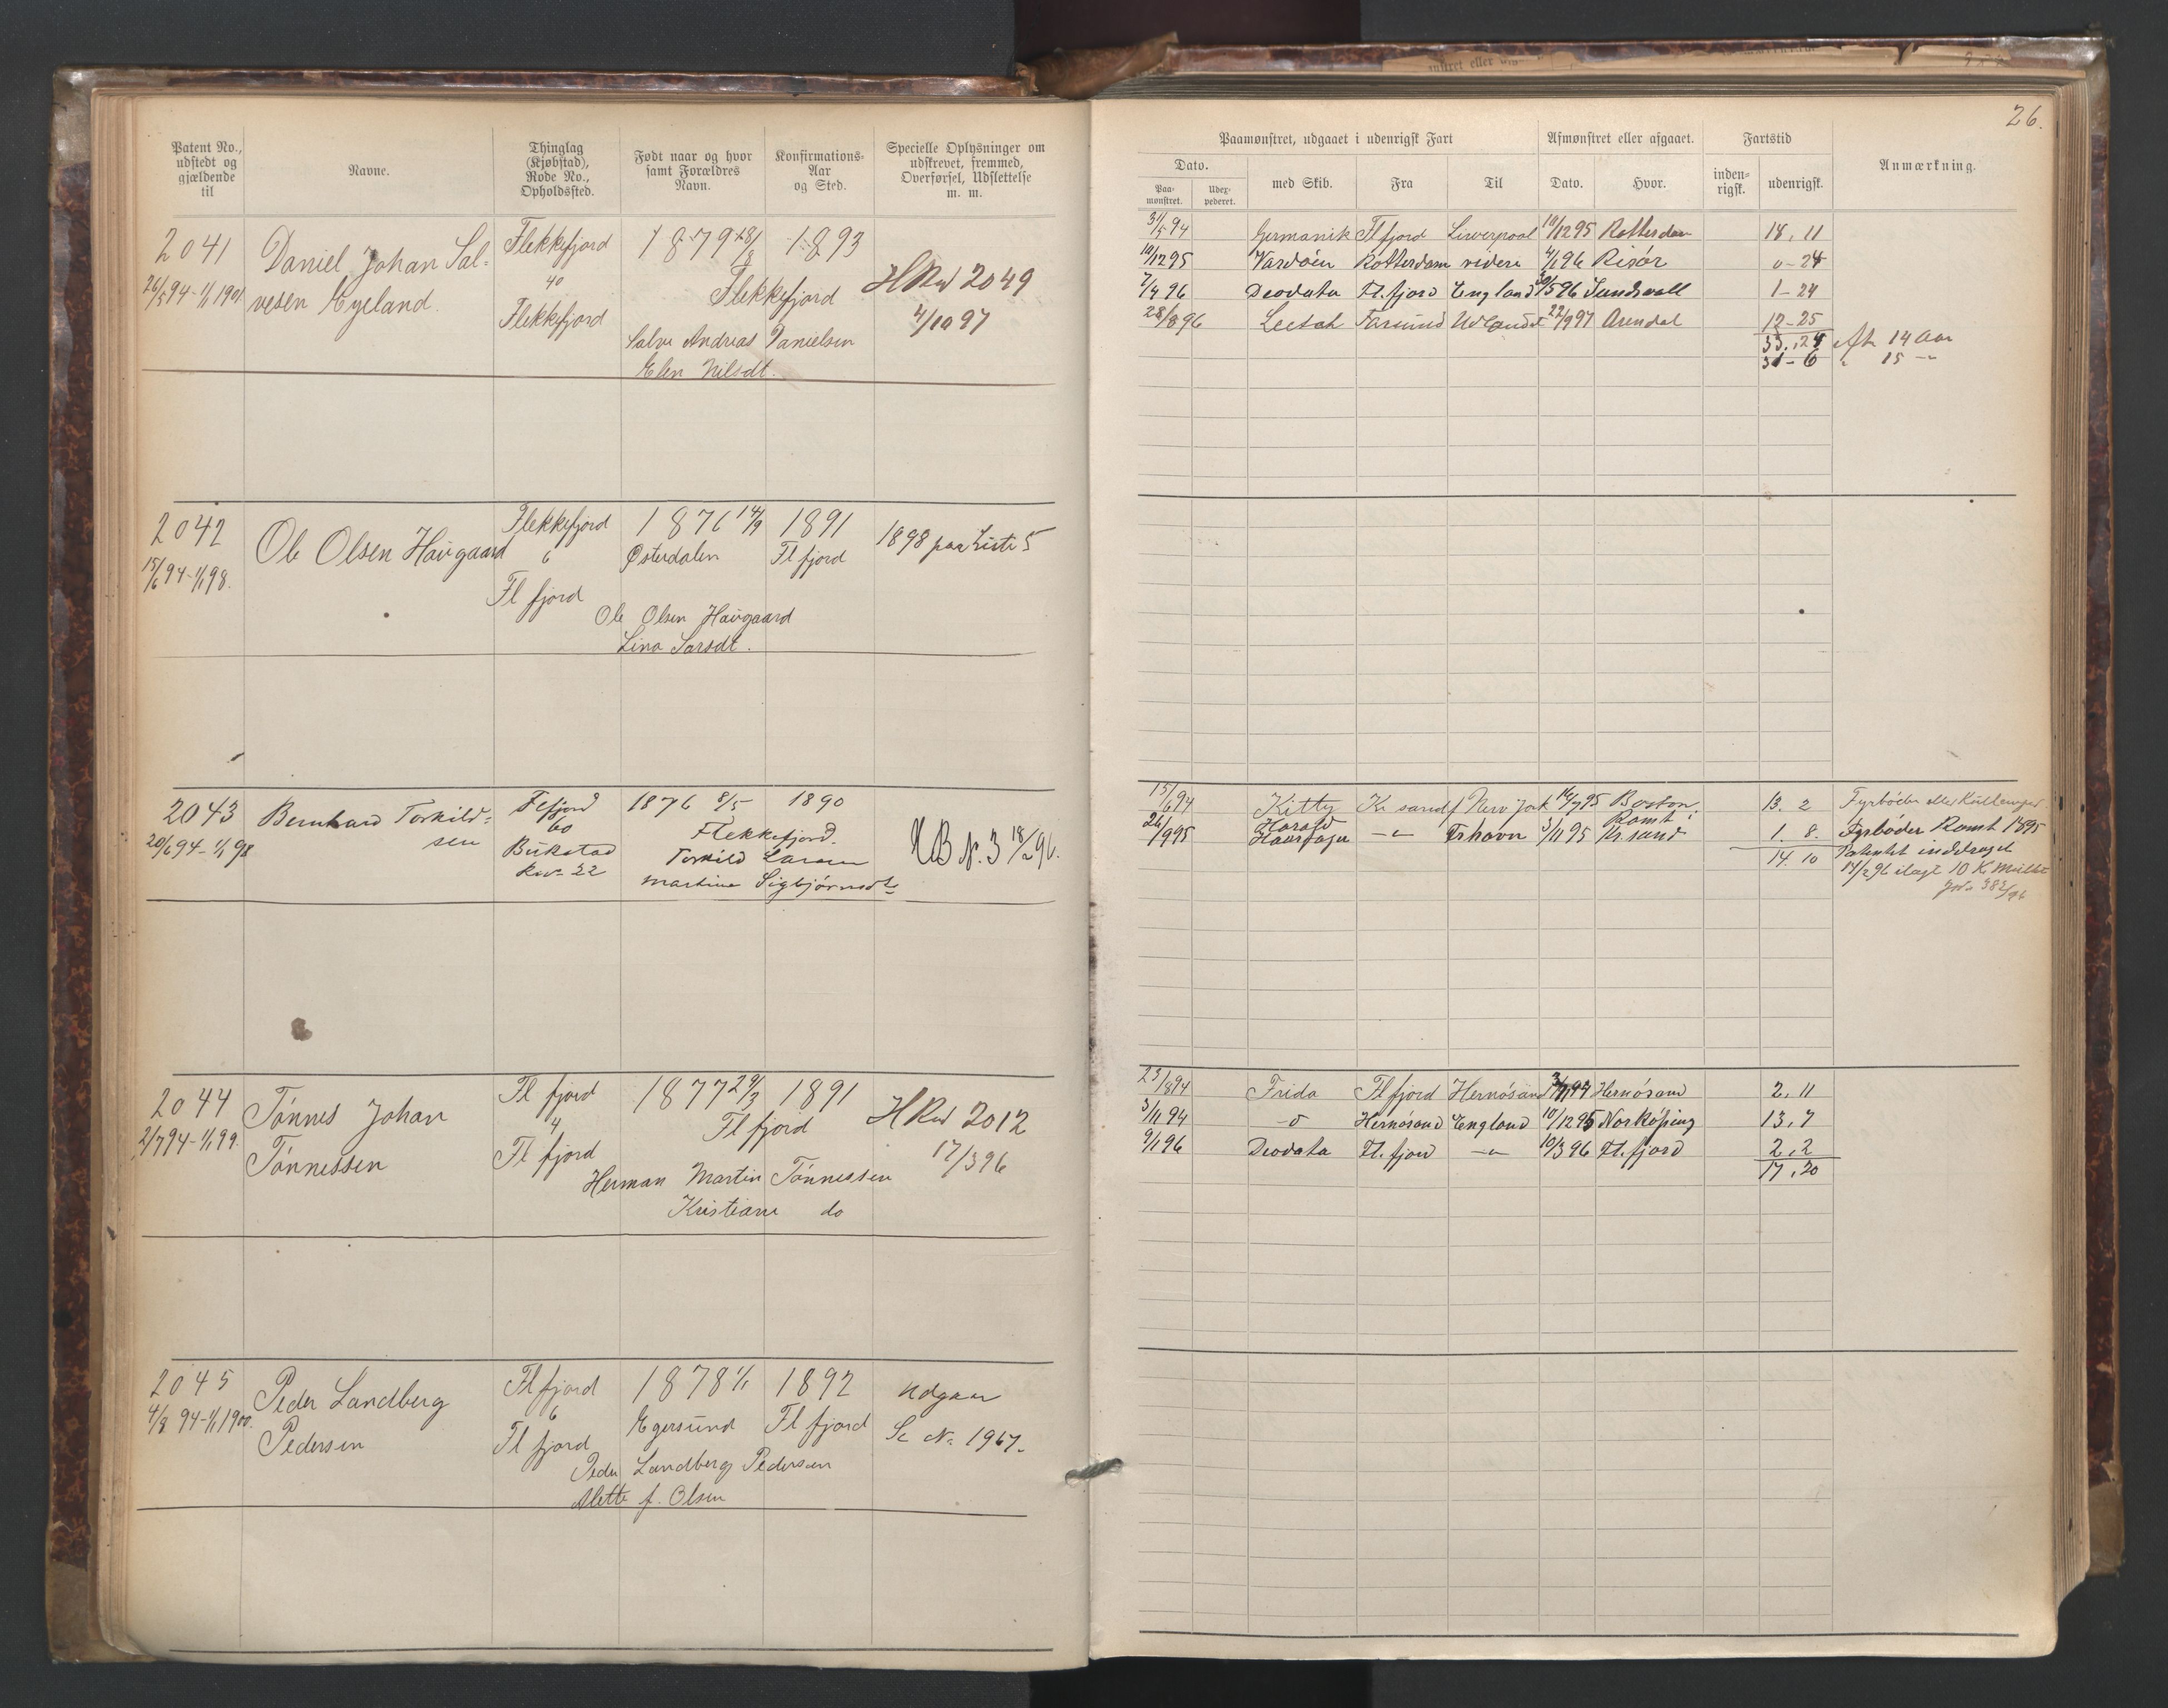 26.
Patent No., udstedt og gjældende til
Navne.
Thinglag (Kjøbstad), Rode No., Opholdssted.
Født naar og hvor samt Forældres Navn.
Konfirmations-Aar og Sted.
Specielle Oplysninger om udskrevet, fremmed, Overførsel, Udslettelse m. m.
Paamønstret, udgaaet i udenrigsk Fart
Afmønstret eller afgaaet.
Fartstid
Anmærkning.
Dato.
Paa-mønstret.
med Skib.
Fra
Til
Dato.
Hvor.
inden-rigsk.
udenrigsk.
2041 Daniel Johan Sal- Flekkefjord 1879 18/8 1893
26/5 94-1/1 1901. vesen Eyeland. 40 Flekkefjord HRw 2049
Flekkefjord 4/10 97
Salve Andreas Danielsen
Elen Nilsdt.
31/5 94 Germanik Flfjord Liverpool 10/12 95 Rotterdam 18. 11
10/12 95 Vardöen Rotterdam videre 4/1 96 Risör 0-24
7/4 96 Deodata Fl.fjord England 30/5 96 Sundsvall 1-24
28/8 96 Farsund Udlandet 22/9 97 Arendal 12-25
33.24 14 Aar
31-6 15 -"-
2042 Ole Olsen Haugaard Flekkefjord 1876 14/9 1891 1898 paa Liste 5
15/6 94-1/1 98. 6 Østerdalen Flfjord
Flfjord
Ole Olsen Haugaard
Lina Larsdt.
2043 Bernhard Torkild- Flfjord 1876 8/5 1890
20/6 94-1/1 98 sen 60 Flekkefjord. HB N. 3 18/2 96.
Bukstad Torkild Larsen
22 Martine Sigbjørnsdt
15/6 94 Kitty Kr sand New York 16/7 95 Boston. 13. 2 Fyrbøder eller
26/9 95 Harald Haarfager -"- Frhavn 3/11 95 Kr.sand 1. 8. Fyrbøder Romt 1895
14. 10 Patentet inddraget
14/2 96 ilagt 10 K Mulkt
2044 Tönnes Johan Fl fjord 1877 29/3 1891 HRw 2012
2/7 94-1/1 99. Tönnessen 4 Fl fjord 17/3 96
Fl fjord
Herman Martin Tönnessen
Kristiane do
23/8 94 Frida Flfjord Hernösand Hernösand 2. 11
3/11 94 -o Hernösand England 10/12 95 Norköping 13. 7
9/1 96 Deodata Fl.fjord -"- 10/3 96 Fl.fjord 2. 2
17. 20
2045 Peder Landberg Flfjord 1878 1/1 1892 Udgaar
4/8 94-1/1 1900. Pedersen 6 Egersund Flfjord Se No. 1967.
Fl fjord
Peder Landberg Pedersen
Alette f. Olsen